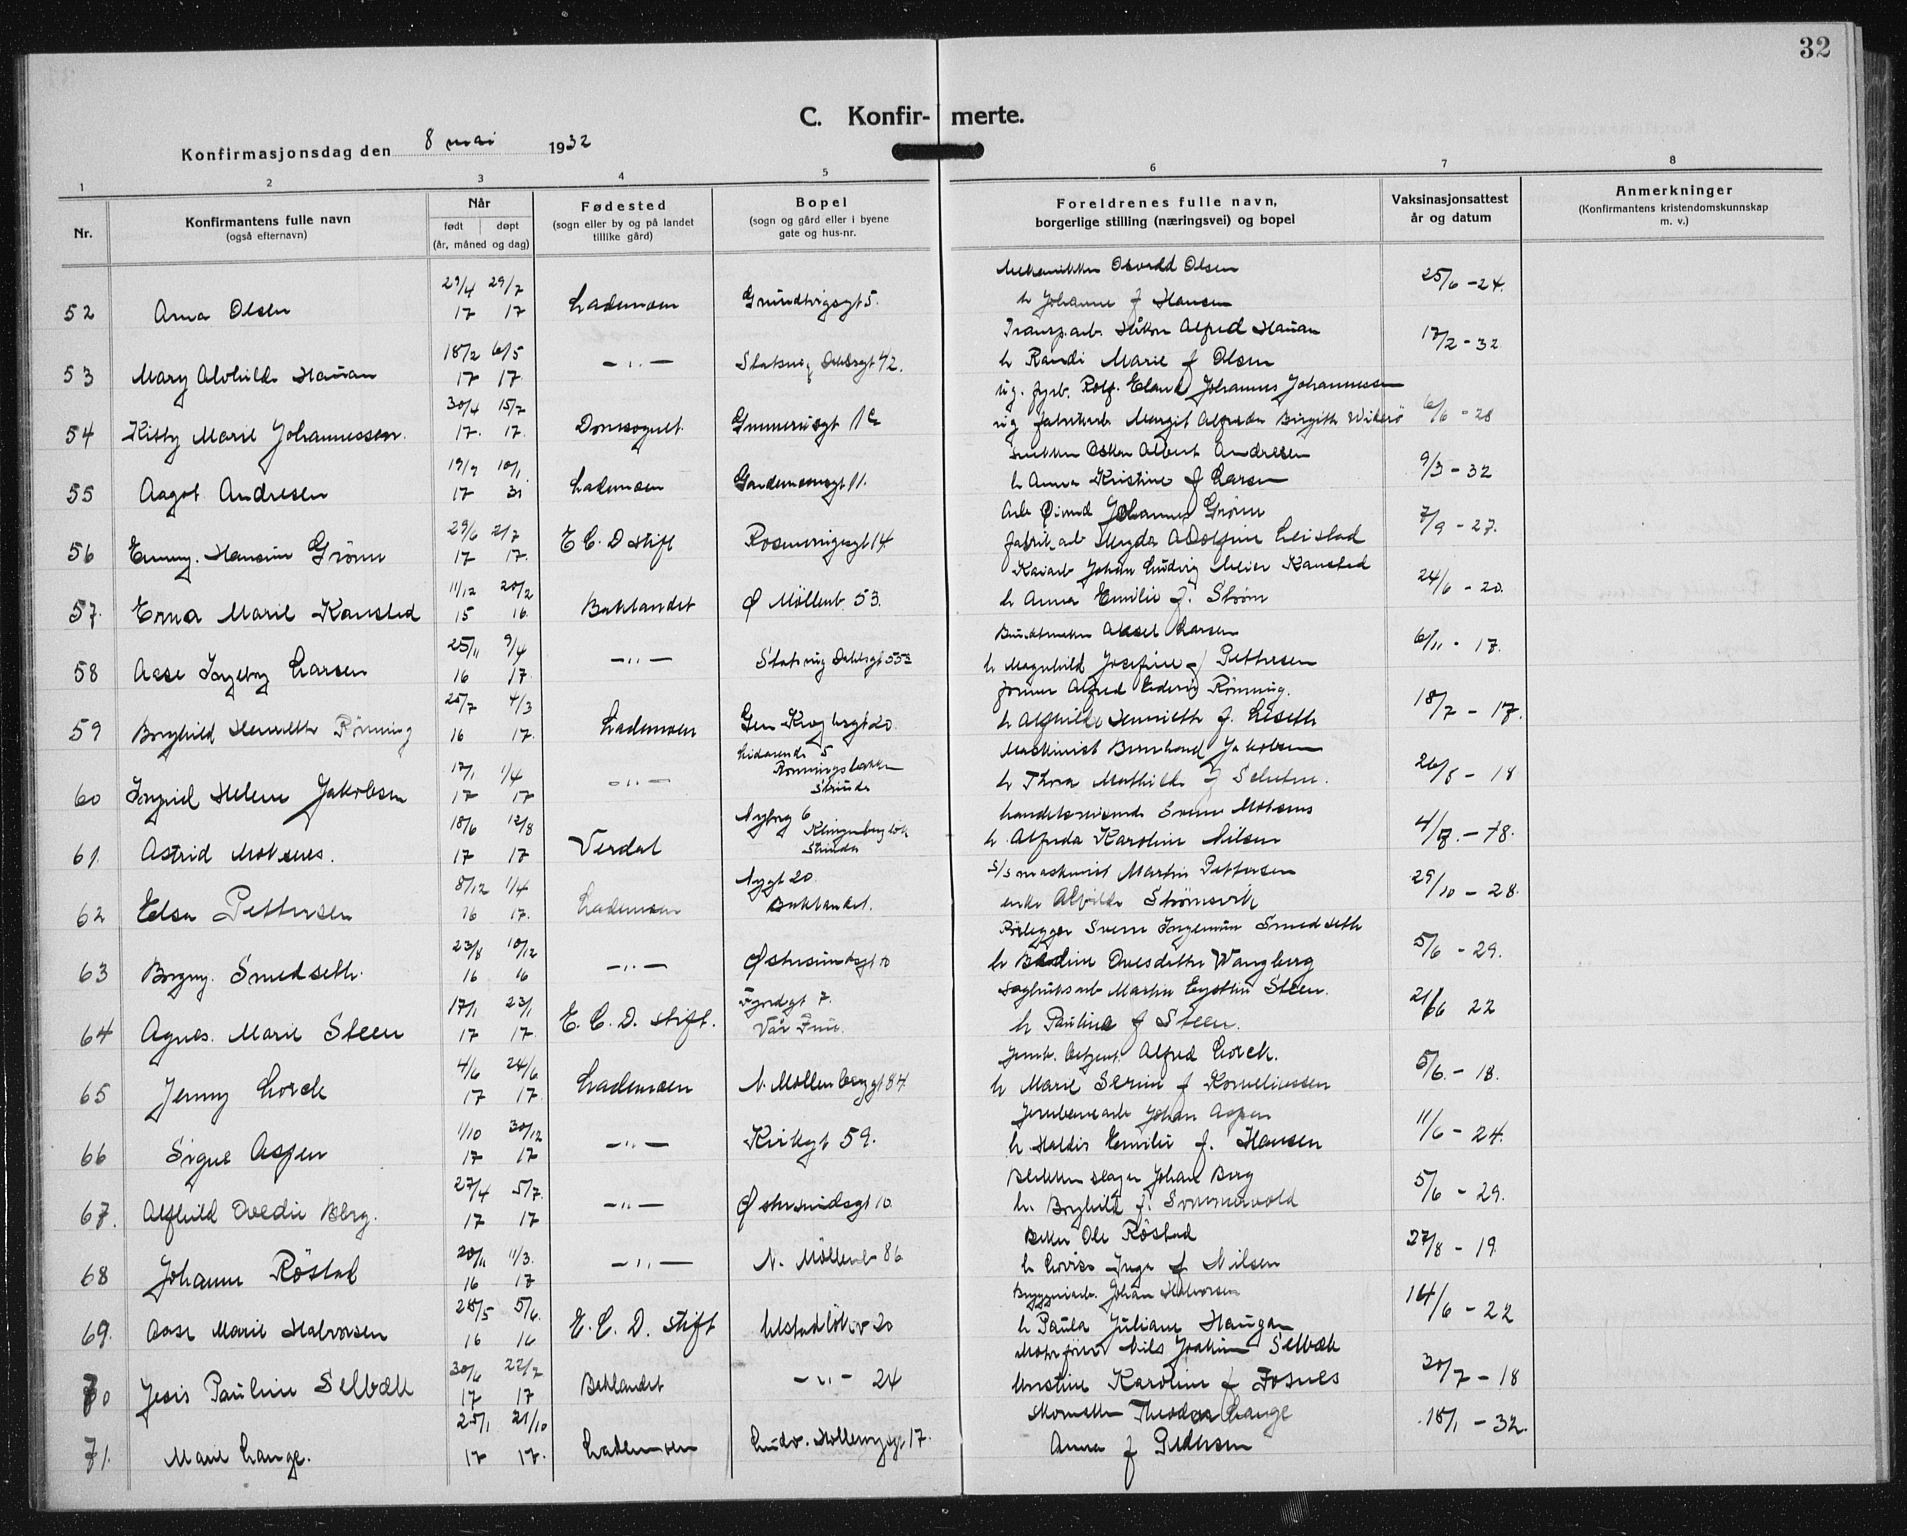 32
C. Konfir- merte.
Konfirmasjonsdag den 8 mai 1932
1 2 3 4 5 6 7 8
Nr.
Konfirmantens fulle navn
(også efternavn)
Når
født døpt
(år, måned og dag)
Fødested
(sogn eller by og på landet
tillike gård)
Bopel
(sogn og gård eller i byene
gate og hus-nr.
Foreldrenes fulle navn,
borgerlige stilling (næringsvei) og bopel
Vaksinasjonsattest
år og datum
Anmerkninger
(Konfirmantens kristendomskunnskap
m. v.)
29/4 29/7 Osvald Olsen 25/6 - 24.
52 Anna Olsen 17 17 Lademoen Grundtvigsgt 5. h Johanne f Hansen
18/2 6/5 Transp.arb. Håkon Alfred Hauan 17/2 - 32
53 Mary Alvhilde Hauan 17 17. — " — 42. h Randi Marie f Olsen
30/4 15/7 ug. fyrb. Rolf Johannes Johannessen
54 Kitty Marie Johannessen. 17. 17. Domsognet Gunnerusgt 1c ug fabrikarb Margit Alfreda Birgitte 6/6 - 28
19/9 10/1 Snikker Oskar Albert Andresen 9/3 - 32
55 Aagot Andresen 17 31 Lademoen Gardemoensgt 11. h Anna Kristine f Larsen
29/6 21/7 Arb Øivind Johannes Grønn 7/9 - 27.
56 Emmy. Hansine Grønn 17 17. E. C. D stift Rosenvingesgt 14 fabrik.arb Magda Adolfine Leistad
11/12 20/2 Kaiarb Johan Ludvig Meier Kansted 24/6 - 20.
57. Erna Marie Kansted 15 16. Baklandet Ø Møllenb. 53. h Anna Emilie f. Strøm
25/11 9/4 Buntmaker Aksel Larsen 6/11 - 17.
58 Asse Ingeborg Larsen 16 17. — " — h Magnhild Josefine f Pettersen
25/7 4/3 former Alfred Rønning. 18/7 - 17.
59 Borghild Henriette Rønning 16 17. Lademoen Gen Kroghsgt 20 h Alfhilde Henriette f. Liseth
17/1 1/4 Lidarende 5 Maskinist Bernhard Jakobsen
60 Ingrid Helene Jakobsen 17 17 — " — Rønningsbakken Strinda h Thora Mathilde f 26/8 - 18
18/6 12/8 Nybrg 6 handelsreisende Sverre Moksnes 4/7. - 18.
61. Astrid Moksnes. 17 17 Verdal Strinda h. Alfrida Karoline Nilsen
8/12 1/4 Nygt 20 S/S maskinist Martin Pettersen 29/10 - 28.
62 Elsa Pettersen 16 17. Lademoen Baklandet. enke Alfhilde Strømsvik
23/8 10/12 Rørlegger Sverre Ingemun Smedseth 5/6 - 29.
63 Borgny. Smedseth. 16 16 — " — Østersundsgt 10 h Ovesdatter Wangberg
17/1 23/1 Fjordgt 7. Sagbruksarb Martin Eystein Steen.
64 Agnes. Marie Steen 17 17. E. C. D. stift. Vår Frue. h Pauline f Steen. 21/6 22
4/6 24/6. Jernb. betjent. Alfred Lorck. 5/6. - 18.
65 Jenny Lorck 17 17 Lademoen N. Møllenberggt 84 h Marie Serine f Korneliussen
1/10 30/12 Jernbanearb Johan Aspen 11/6 - 24.
66 Signe Aspen 17 17 — " — Kirkegt 59. h. Haldis Emilie f. Hansen
27/4 5/7. Blikkenslager Johan Berg 5/6 - 29.
67. Alfhild Ovedie Berg. 17 17 — " — Østersundsgt 10. h. Borghild f. Svinnervold
20/11 11/3. Ole Røstad 27/8 - 19
68 Johanne Røstad 16 17 — " — N. Møllenb 86 h Lovise Inga f Nilsen
28/5 5/6. Bryggeriarb. Johan Halvorsen 14/6 - 22
69. Aase Marie Halvorsen 16 16 E. C. D. stift 20 h Paula Juliane Haugan
30/6 22/7 Nils Joakim Selbæk 30/7 - 18
70 Pauline Selbæk 17 17 Baklandet — " — 24 Karoline f Fosnes
25/1 21/10 Skomaker Theodor Lange 18/1 - 32.
71. Marie Lange. 17 17. Lademoen 17. Anna f Pedersen